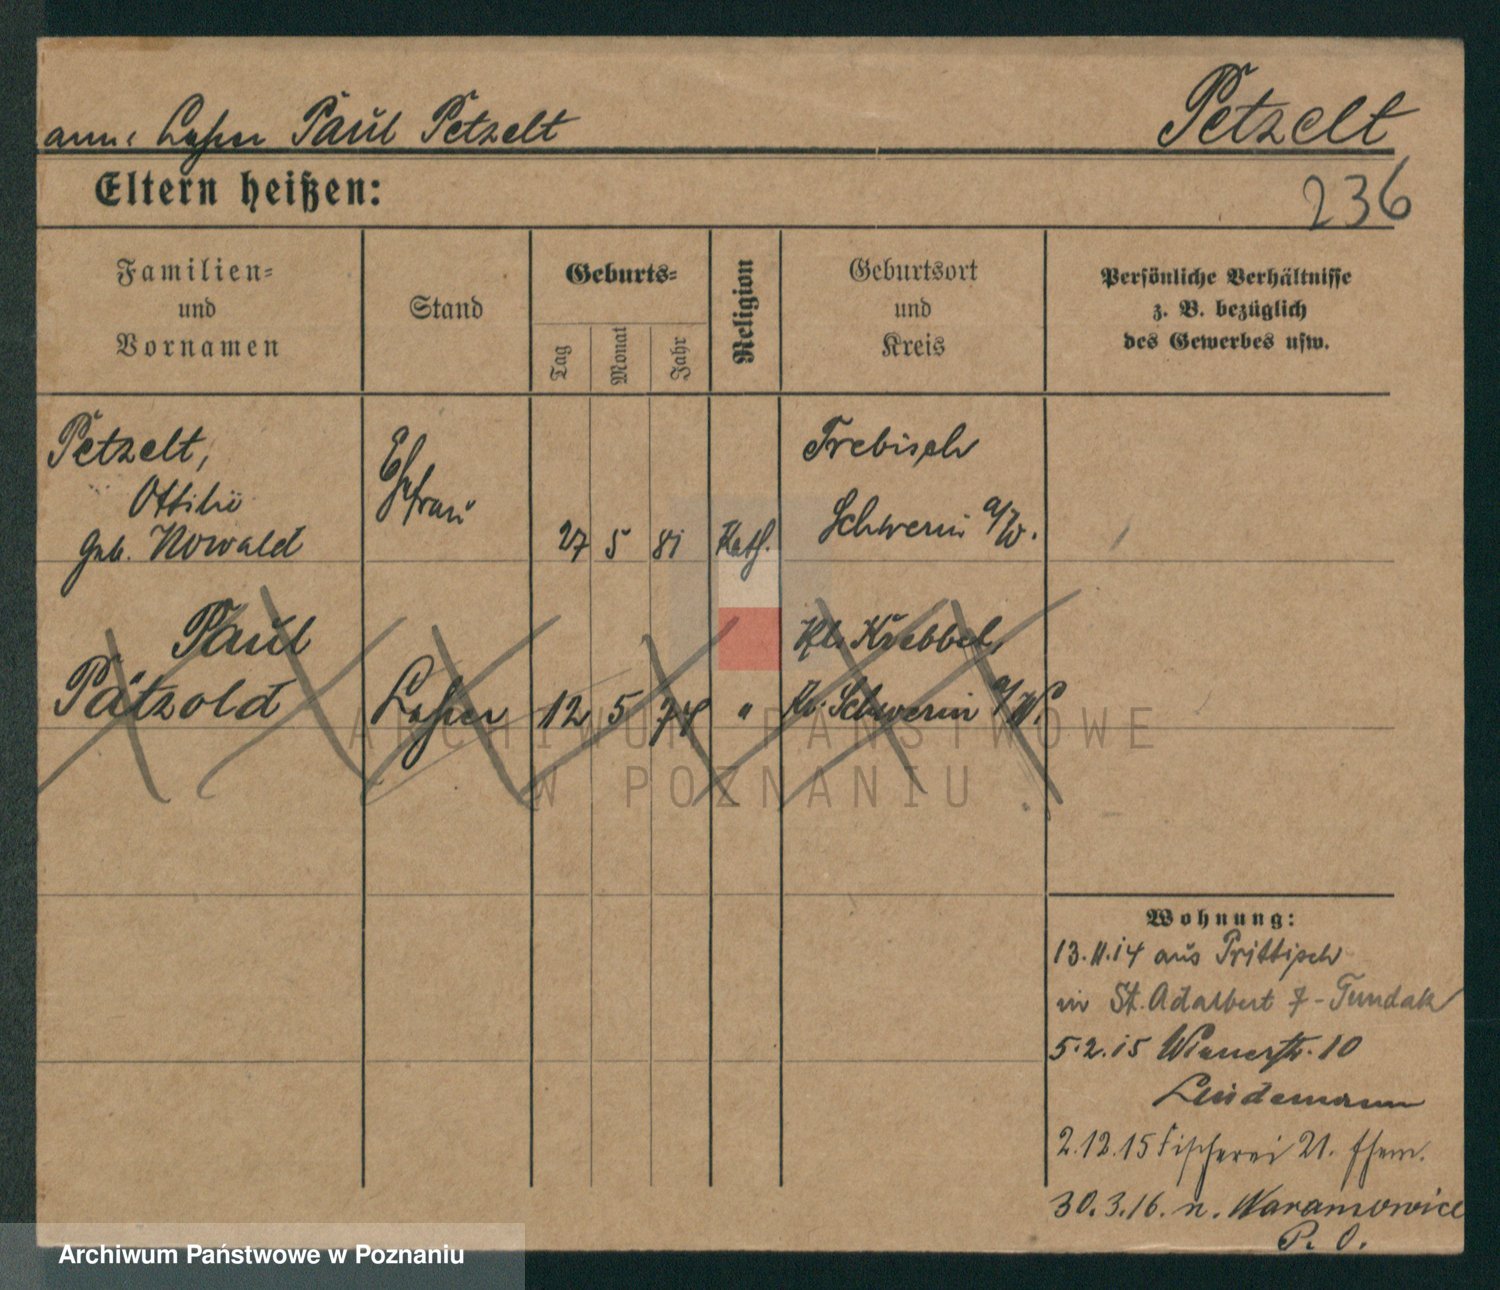 Ehem: Lehrer Paul Petzelt
Petzelt
Eltern heißen:
236
Familien- und Vornamen
Stand
Geburts-
Tag
Monat
Jahr
Religion
Geburtsort und Kreis
Persönliche Verhältnisse z. B. bezüglich des Gewerbes usw.
Petzelt,
Ottilie
geb. Nowald
Ehefrau
27 5 81 Kath.
Trebisch
Schwerin a/W.
Paul
Pätzold
Lehrer
12 5 74 "
Kl. Krebbel,
Kr. Schwerin a/W.
Wohnung:
13.11.14 aus Prittisch
in St. Adalbert 7 - Tundak
5.2.15 Wienerstr. 10
Lindemann
2.12.15 Fischerei 21. Ehem.
30.3.16. n.
P. O.
ARCHIWUM PAŃSTWOWE
W POZNANIU
Archiwum Państwowe w Poznaniu